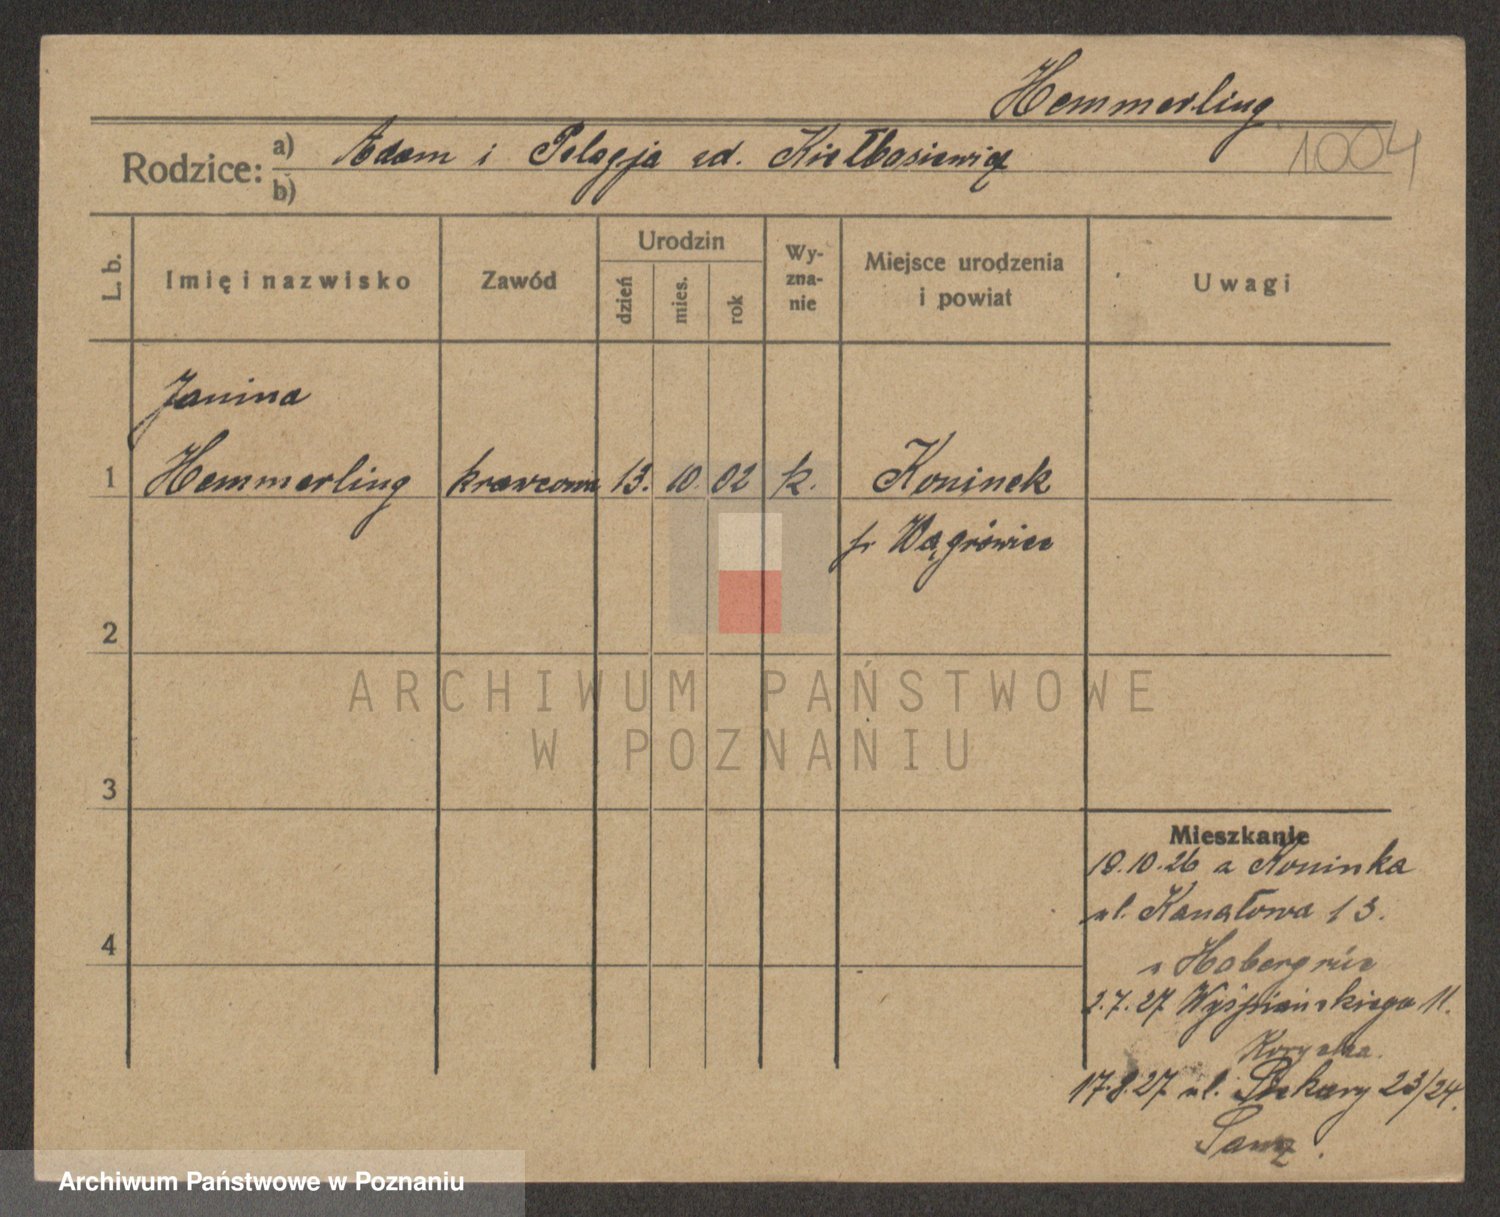 Hemmerling
1004
Rodzice:
a) Adam i Pelagja zd. Kiełbasiewicz
b)
L. b.
Imię i nazwisko
Zawód
Urodzin
dzień
mies.
rok
Wy-
zna-
nie
Miejsce urodzenia
i powiat
Uwagi
Janina
1 Hemmerling krawcowa 13. 10. 02 k. Koninek
p Wągrówiec
2
3
4
Mieszkanie
18.10.26 z Koninka
ul. Kanałowa 13.
2.7.27 Wyśpiańskiego 11.
17.8.27 ul. Piekary 23/24.
ARCHIWUM PAŃSTWOWE
W POZNANIU
Archiwum Państwowe w Poznaniu